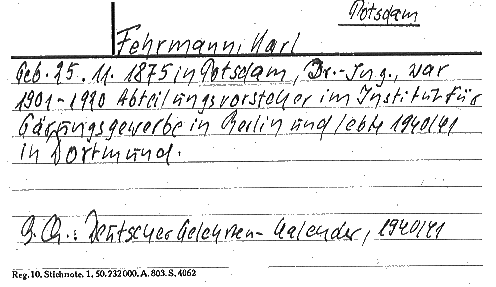 Potsdam
Fehrmann, Karl
Geb. 25. 11. 1875 in Potsdam, Dr.-Ing., war
1901-1920 Abteilungsvorsteher im Institut für
Gärungsgewerbe in Berlin und lebte 1940/41
in Dortmund.
Deutscher Gelehrten-Kalender, 1940/41
Reg. 10. Stichnote. 1. 50. 232000. A. 803. S. 4062